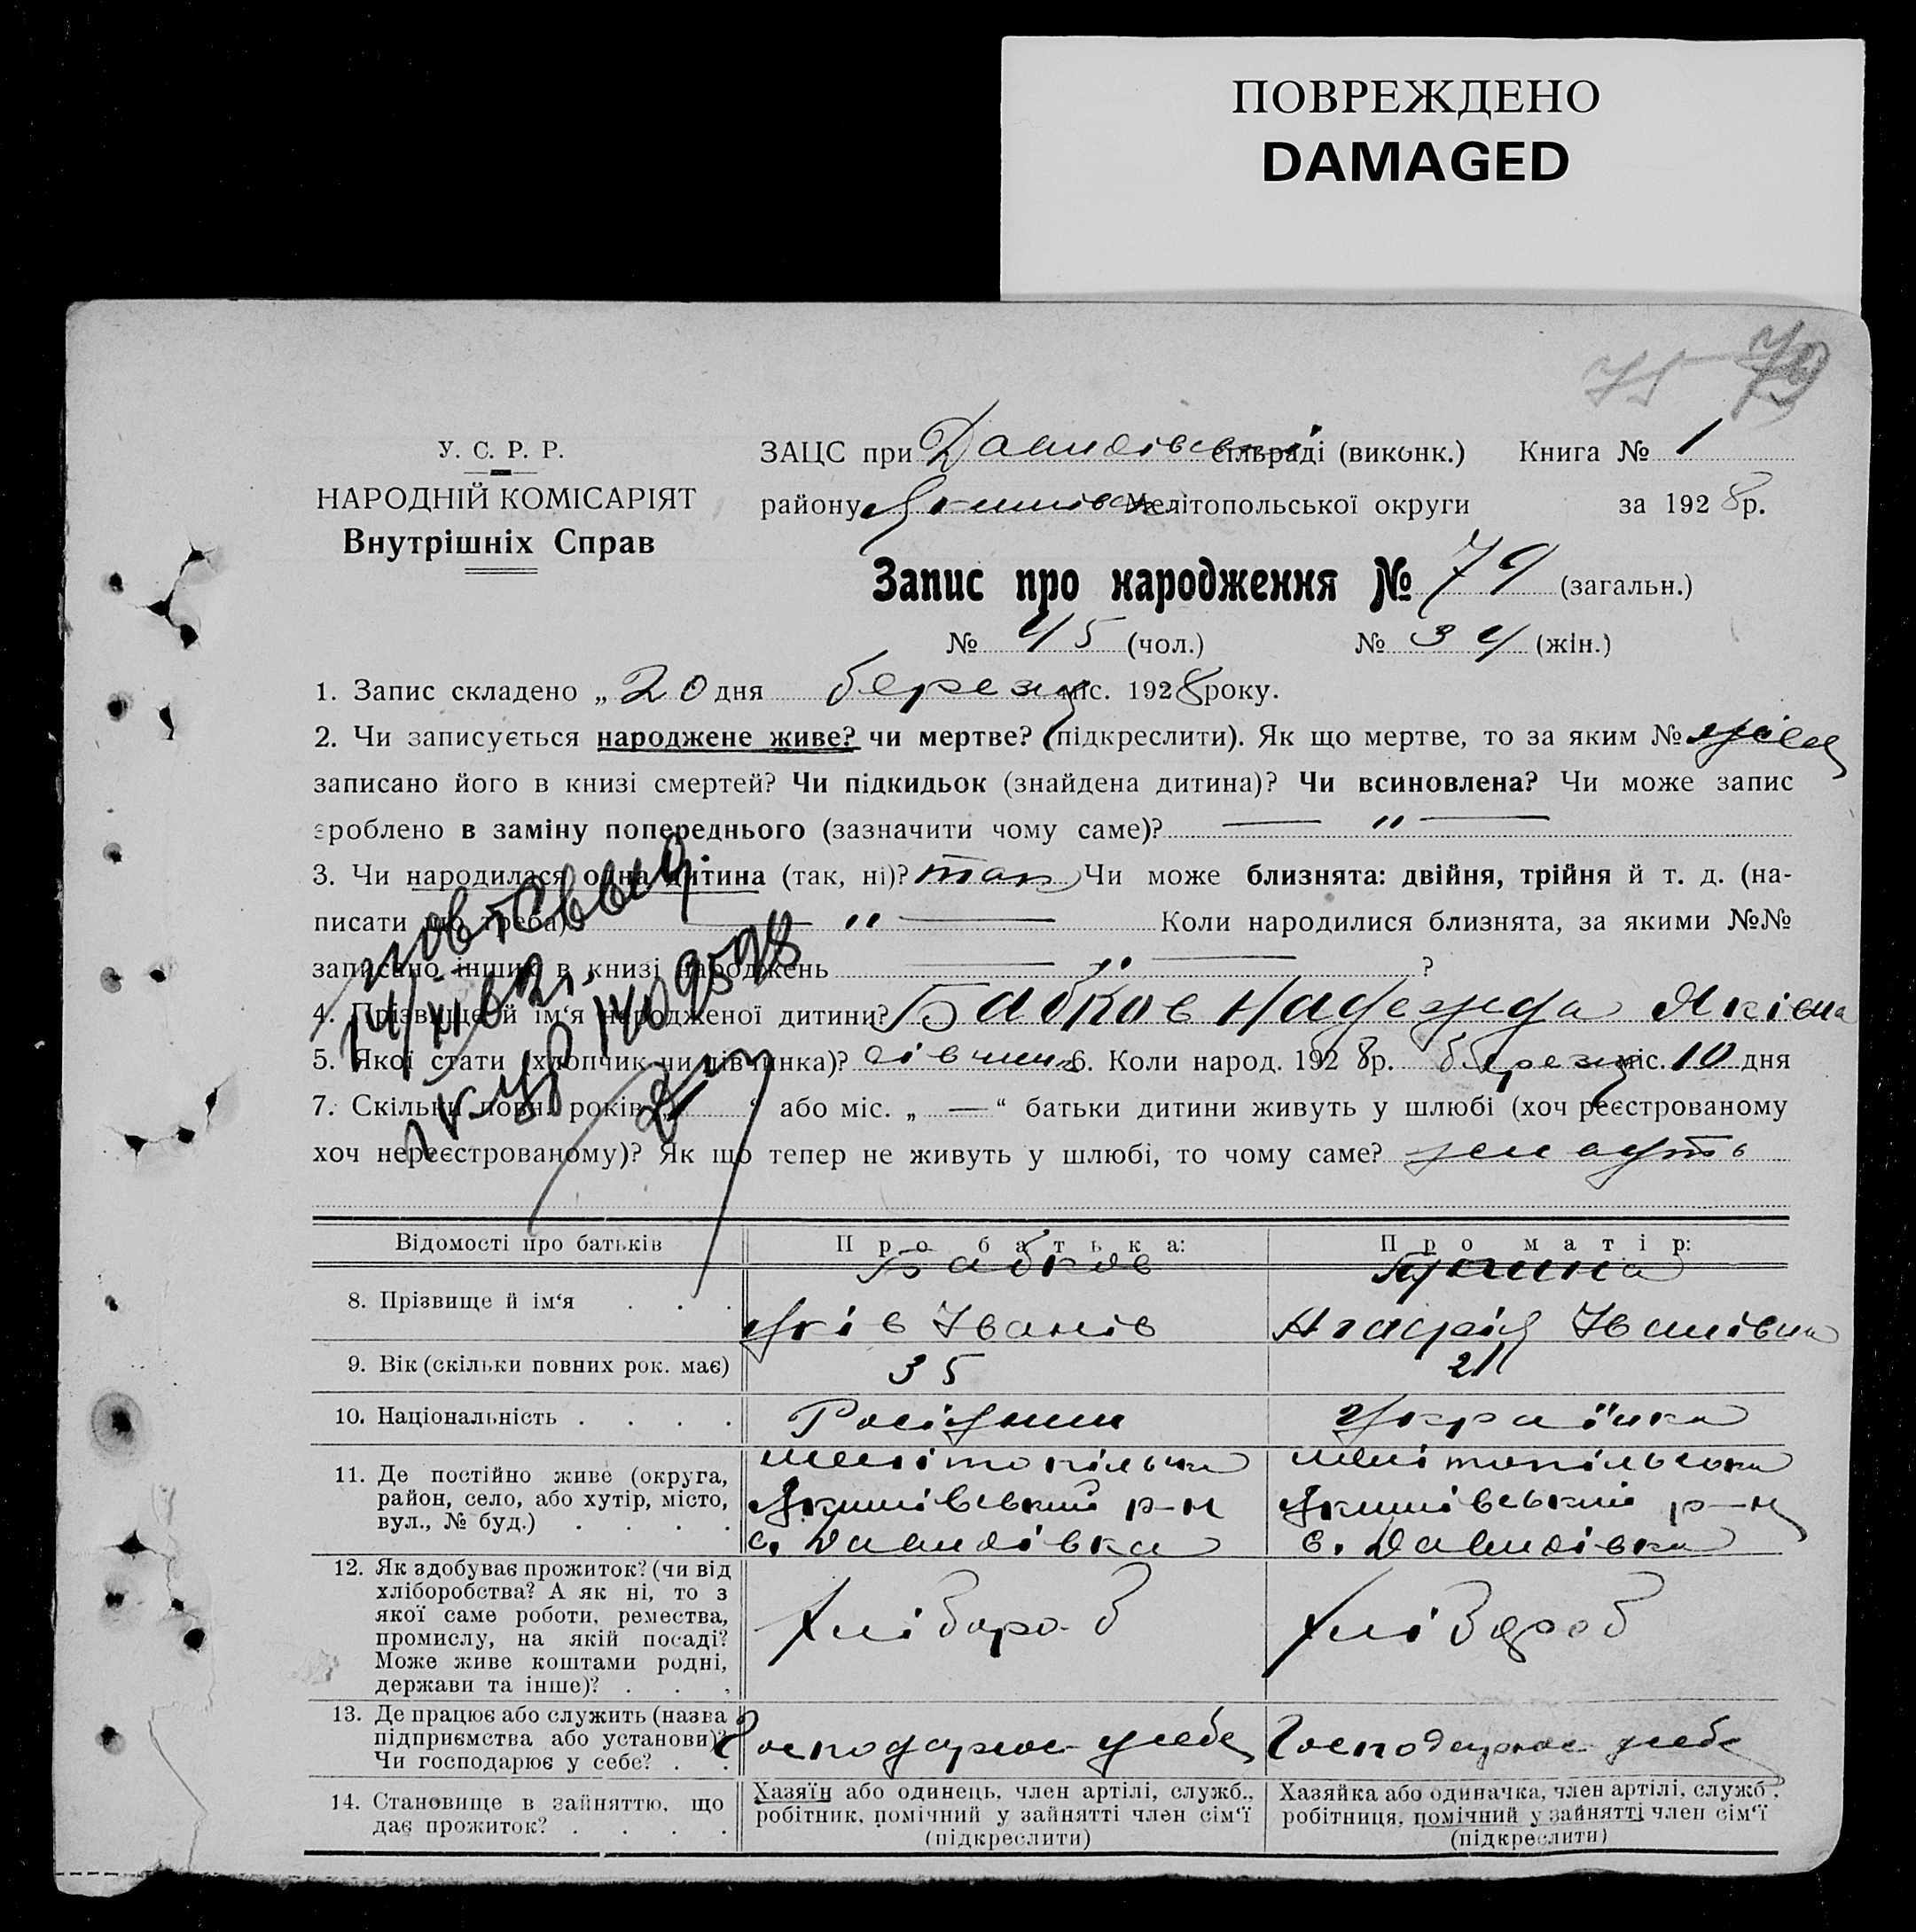 ПОВРЕЖДЕНО
DAMAGED
75 79
У. С. Р. Р.
НАРОДНІЙ КОМІСАРІЯТ
Внутрішніх Справ
ЗАЦС при Давидівській сільраді (виконк.) Книга № 1
району Якимівськ Мелітопольської округи за 1928 р.
Запис про народження № 79 (загальн.)
№ 45 (чол.) № 34 (жін.)
1. Запис складено „ 20 дня березня міс. 1928 року.
2. Чи записується народжене живе? чи мертве? (підкреслити). Як що мертве, то за яким №
записано його в книзі смертей? Чи підкидьок (знайдена дитина)? Чи всиновлена? Чи може запис
зроблено в заміну попереднього (зазначити чому саме)? — „ —
3. Чи народилася одна дитина (так, ні)? так Чи може близнята: двійня, трійня й т. д. (на-
писати що треба) — „ — Коли народилися близнята, за якими №№
записано інших в книзі народжень — „ — ?
4. Прізвище й ім‘я народженої дитини? Бабков Надежда Яківна
5. Якої стати (хлопчик чи дівчинка)? дівчина 6. Коли народ. 1928 р. березня міс. 10 дня
7. Скільки повн. років „ 1 “ або міс. „ — “ батьки дитини живуть у шлюбі (хоч реєстрованому
хоч нереєстрованому)? Як що тепер не живуть у шлюбі, то чому саме? живуть
Відомості про батьків Про батька: Про матір:
8. Прізвище й ім‘я . . . Бабков
Яків Іванів Агафія Іванівна
9. Вік (скільки повних рок. має) 35 21
10. Національність . . . . Росіянин Українка
11. Де постійно живе (округа, район, село, або хутір, місто, вул., № буд.) . . . .
Мелітопільська Мелітопільська
Якимівський р-н Якимівський р-н
с. Давидівка с. Давидівка
12. Як здобуває прожиток? (чи від
хліборобства? А як ні, то з
якої саме роботи, ремества,
промислу, на якій посаді?
Може живе коштами родні,
держави та інше)? . . .
Хлібороб Хлібороб
13. Де працює або служить (назва
підприємства або установи)?
Чи господарює у себе? . .
Господарює у себе Господарює у себе
14. Становище в зайняттю, що
дає прожиток? . . . .
Хазяїн або одинець, член артілі, служб.,
робітник, помічний у зайнятті член сім‘ї
(підкреслити)
Хазяйка або одиначка, член артілі, служб.,
робітниця, помічний у зайнятті член сім‘ї
(підкреслити)